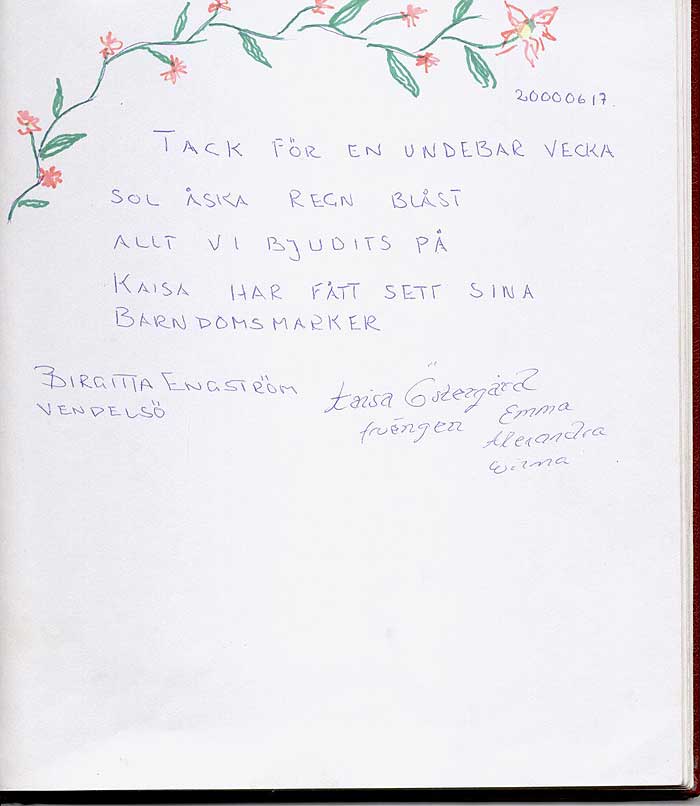 20000617.
TACK FÖR EN UNDEBAR VECKA
SOL ÅSKA REGN BLÅST
ALLT VI BJUDITS PÅ
KAISA HAR FÅTT SETT SINA
BARNDOMSMARKER
BIRGITTA ENGSTRÖM
VENDELSÖ
Kaisa Östergård
Emma
Alexandra
Wilma